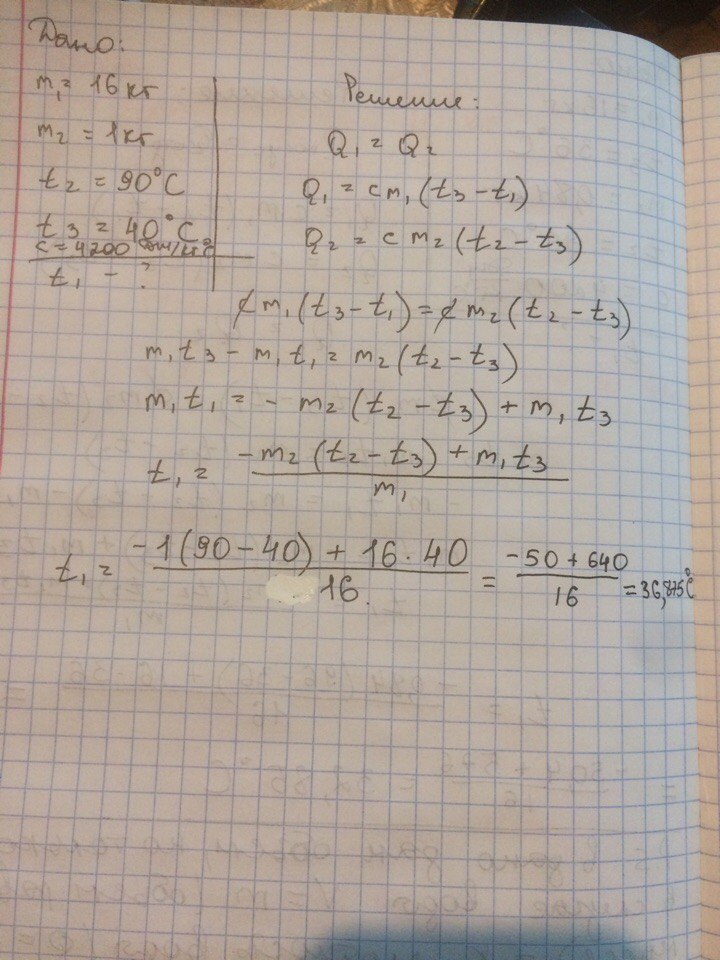 Дано:
m₁ = 16 кг
m₂ = 1 кг
t₂ = 90°C
t₃ = 40°C
c = 4200 Дж/кг°C
t₁ - ?
Решение:
Q₁ = Q₂
Q₁ = cm₁(t₃ - t₁)
Q₂ = cm₂(t₂ - t₃)
cm₁(t₃ - t₁) = cm₂(t₂ - t₃)
m₁t₃ - m₁t₁ = m₂(t₂ - t₃)
m₁t₁ = - m₂(t₂ - t₃) + m₁t₃
t₁ = (-m₂(t₂ - t₃) + m₁t₃) / m₁
t₁ = (-1(90 - 40) + 16 · 40) / 16 = (-50 + 640) / 16 = 36,875°C